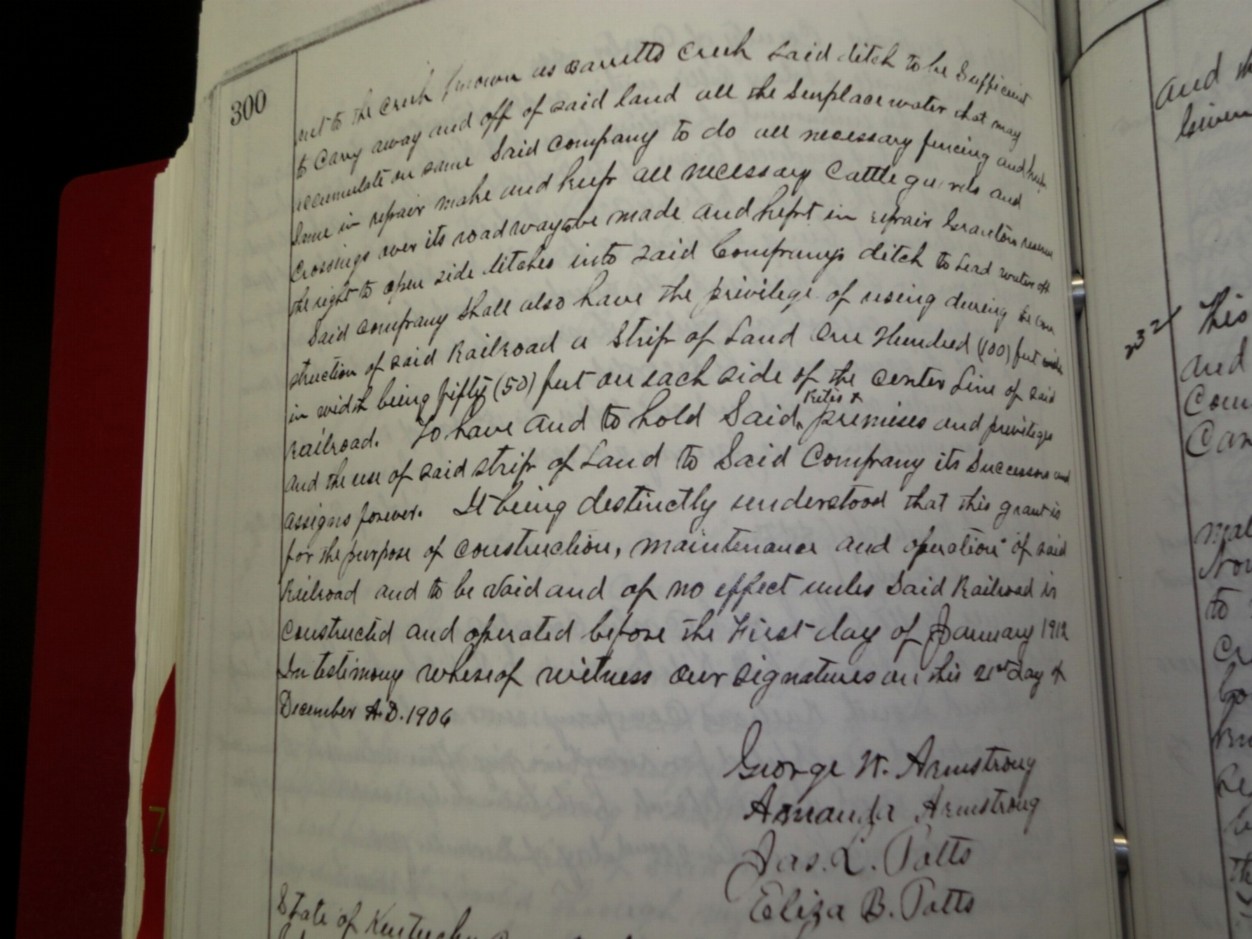 300
to the creek known as Barretts creek said ditch to be sufficient
to carry away and off of said land all the Surplace water that may
accumulate on same Said company to do all necessary fencing and keep
same in repair make and keep all necessary Cattle guards and
Crossings over its roadway to be made and kept in repair Grantors reserve
the right to open side ditches into said Companys ditch to Lead water off
Said company shall also have the privilege of using during the con
struction of said Railroad a Strip of Land One Hundred (100) feet wide
in width being fifty (50) feet on each side of the center Line of said
Railroad. To have and to hold Said premises and privileges
and the use of said strip of Land to Said Company its Successors and
assigns forever. It being destinctly understood that this grant is
for the purpose of construction, maintenance and operation of said
Railroad and to be Void and of no effect unless Said Railroad is
Constructed and operated before the First day of January 1912
In testimony whereof witness our signatures on this 21st day of
December A.D. 1906
George W. Armstrong
Amanda Armstrong
Jas. L. Potts
Eliza B. Potts
State of Kentucky
Z
and
232
This
and
Com
to